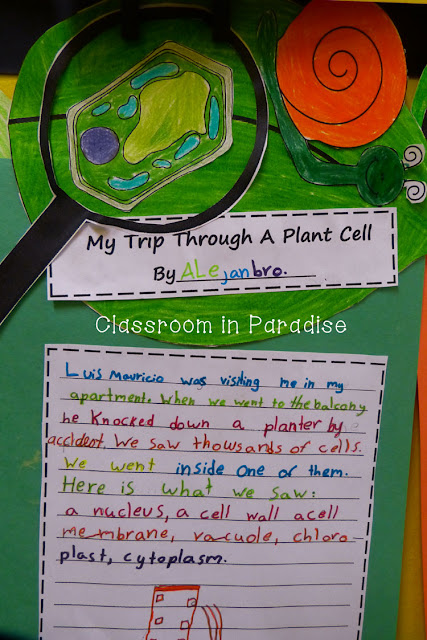 My Trip Through A Plant Cell
By ALejanbro.
Classroom in Paradise
Luis Mauricio was visiting me in my
apartment. When we went to the balcony
he Knocked down a planter by
accident. We saw thousands of cells.
We went inside one of them.
Here is what we saw:
a nucleus, a cell wall acell
membrane, vacuole, chloro-
plast, cytoplasm.